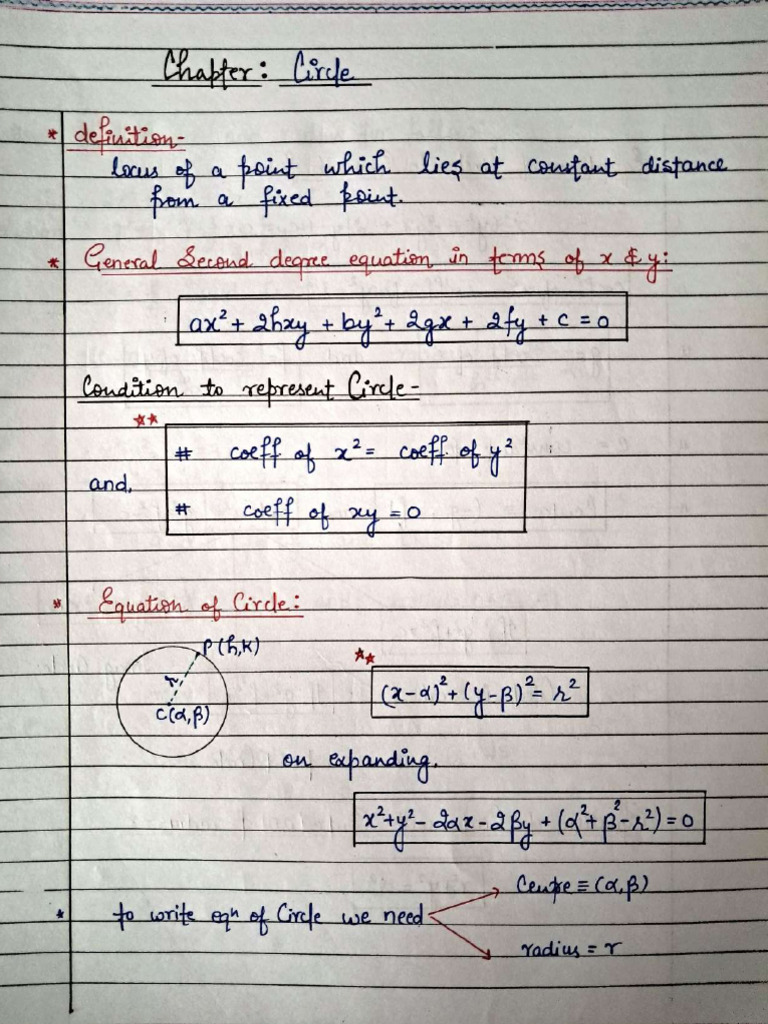 Chapter: Circle
* definition-
locus of a point which lies at constant distance
from a fixed point.
* General Second degree equation in terms of x & y:
ax² + 2hxy + by² + 2gx + 2fy + c = 0
Condition to represent Circle-
**
# coeff of x² = coeff of y²
and,
# coeff of xy = 0
* Equation of Circle:
P(h,k)
**
r
(x-α)² + (y-β)² = r²
C(α,β)
on expanding.
x²+y²-2αx-2βy+(α²+β²-r²)=0
Centre ≡ (α,β)
* to write eqⁿ of Circle we need
radius = r